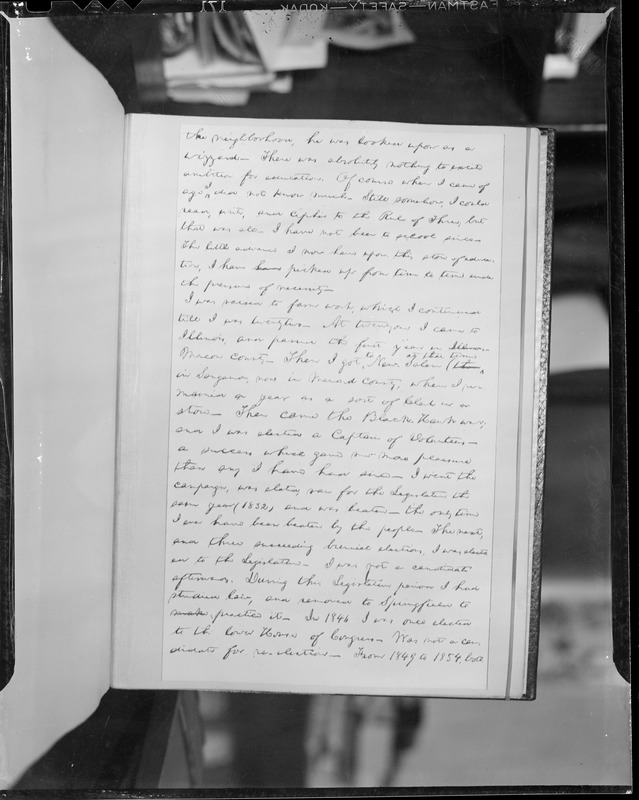 EASTMAN—SAFETY—KODAK 171
the neighborhood, he was looked upon as a
wizzard— There was absolutely nothing to excite
ambition for education. Of course when I came of
age I did not know much— Still somehow, I could
read, write, and cipher to the Rule of Three; but
that was all— I have not been to school since—
The little advance I now have upon this store of educa-
tion, I have picked up from time to time under
the pressure of necessity—
I was raised to farm work, which I continued
till I was twenty two— At twenty one I came to
Illinois, and passed the first year in Illinois—
Macon county— Then I got to New-Salem (then at that time
in Sangamon, now in Menard county, where I re-
mained a year as a sort of Clerk in a
store— Then came the Black-Hawk war;
and I was elected a Captain of Volunteers—
a success which gave me more pleasure
than any I have had since— I went the
campaign, was elated, ran for the Legislature the
same year (1832) and was beaten— the only time
I ever have been beaten by the people— The next,
and three succeeding biennial elections, I was elected
to the Legislature— I was not a candidate
afterwards. During this Legislative period I had
studied law, and removed to Springfield to
make practice it— In 1846 I was once elected
to the lower House of Congress— Was not a can-
didate for re-election— From 1849 to 1854, both